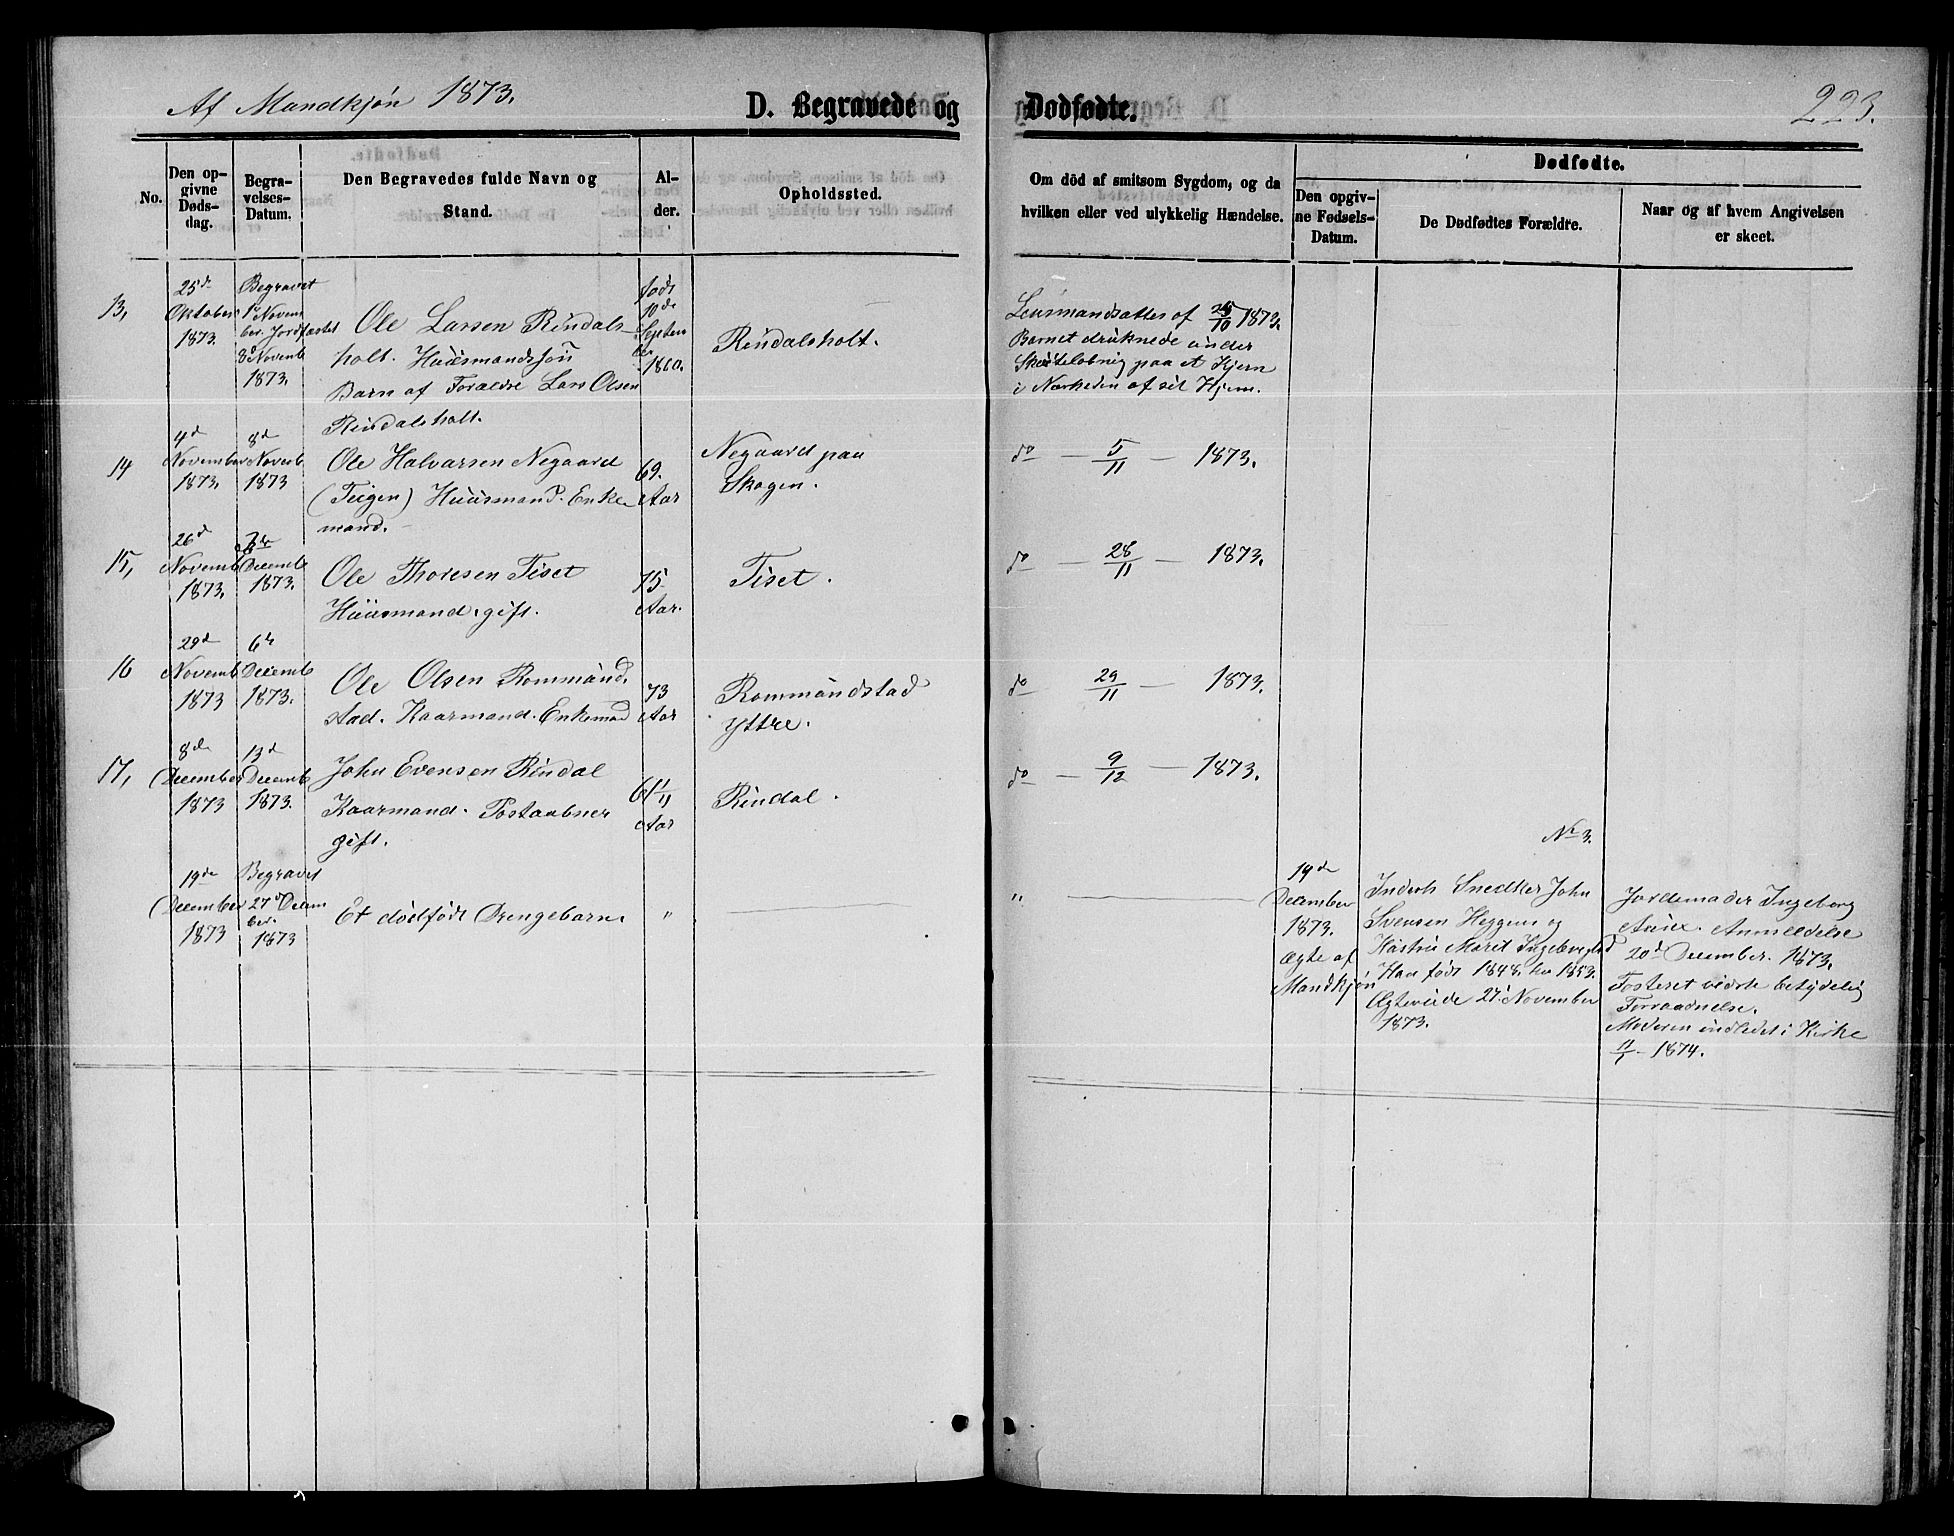 Af Mandkjøn 1873.
D. Begravede og Dødfødte.
223.
No.
Den op-
givne
Døds-
dag.
Begra-
velses-
Datum.
Den Begravedes fulde Navn og
Stand.
Al-
der.
Opholdssted.
Om död af smitsom Sygdom, og da
hvilken eller ved ulykkelig Hændelse.
Dødfødte.
Den opgiv-
ne Fødsels-
Datum.
De Dødfødtes Forældre.
Naar og af hvem Angivelsen
er skeet.
13,
25de
Oktober
1873.
Begravet
1ste Novem
ber. Jordfæstet
8de Novemb
1873.
Ole Larsen Rindals-
holt. Huusmandssøn
Barn af Forældre Lars Olsen
Rindalsholt.
født
10de
Septem
ber
1860.
Rindalsholt.
Lensmandsattes af 26/10 1873.
Barnet druknede under
Skøiteløbning paa et Kjern
i Nærheden af sit Hjem.
14
4d
November
1873.
8d
Novemb.
1873
Ole Halvarsen Negaard
(Teigen) Huusmand. Enke
mand.
69.
Aar
Negaard paa
Skogen.
do — 5/11 — 1873.
15,
26d
Novemb
1873.
Decemb
1873.
Ole Thoresen Tiset
Huusmand, gift.
75
Aar.
Tiset.
do — 28/11 — 1873.
16
29d
Novemb
1873
6te
Decemb
1873.
Ole Olsen Rommünd
stad. Kaarmand. Enkemand
73
Aar
Rommündstad
Yttre.
do 29/11 — 1873.
17,
8de
December
1873
13d
Decemb
1873.
John Evensen Rindal
Kaarmand. Postaabner
gift.
61 1/11
Aar
Rindal.
do — 9/12 — 1873.
No 3.
19de
December
1873
Begravet
27d Decem
ber.
1873
Et dødfødt Drengebarn.
"
"
19de
December
1873.
Ægte af
Mandkjøn
Inderst Snedker John
Svensen Heggen og
Hustru Marit Ingebregtsd
Han født 1848. hun 1853.
Ægteviede 27 November
1873.
Jordemoder Ingeborg
Anmeldelse
20d December. 1873.
Fosteret viiste betydelig
Forraadnelse.
Moderen indledet i Kirke
11/1 — 1874.